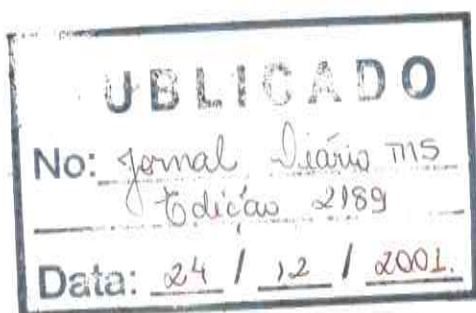 UBLICADO
No: Jornal Diário MS
Edição 2189
Data: 24 / 12 / 2001.